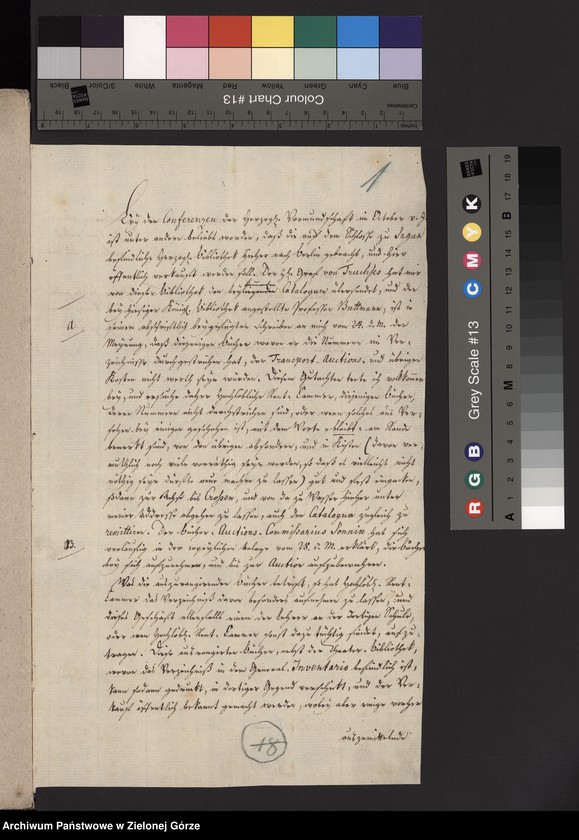 1
Bey den Conferenzen der Herzogl. Vormundschaft im October v. J.
ist unter andern beliebt worden, daß die auf dem Schlosse zu Sagan
befindliche Herzogl. Bibliothek hieher nach Berlin gebracht, und hier
öffentlich verkauft werden soll. Der Hr. Graf von Truchses hat mir
von dieser Bibliothek den beykommenden Catalogum übersendet, und der
bey hiesiger Königl. Bibliothek angestellte Professor Buttmann, ist in
a.
seinem abschriftlich beygefügten Schreiben an mich vom 24. d. M. der
Meynung, daß diejenigen Bücher, wovon er die Nummern im Ver-
zeichnisse durchgestrichen hat, der Transport- Auctions- und übrigen
Kosten nicht werth seyn würden. Diesem Gutachten trete ich vollkommen
bey, und ersuche daher Hochlöbliche Rent-Cammer, diejenigen Bücher,
deren Nummern nicht durchstrichen sind, oder wenn solches aus Ver-
sehen bey einigen geschehen ist, mit dem Worte bleibt am Rande
bemerkt sind, von den übrigen absondern, und in Kisten (davon ver-
muthlich noch viele vorräthig seyn werden, so daß es vielleicht nicht
nöthig seyn dürfte neue machen zu lassen) gut und fest einpacken,
sodann zur Achse bis Crossen, und von da zu Wasser hieher unter
meiner Addresse abgehen zu lassen, auch den Catalogum zugleich zu
remittiren. Der Bücher-Auctions-Commissarius Sonnin hat sich
B.
vorläufig in der copeylichen Anlage vom 28. d. M. erklärt, die Bücher
bey sich aufzunehmen, und bis zur Auction aufzubewahren.
Was die auszurangirenden Bücher betrifft, so hat Hochlöbl. Rent-
Cammer das Verzeichniß davon besonders aufnehmen zu lassen, und
dieses Geschäft allenfalls einem der Lehrer an der dortigen Schule,
oder wen Hochlöbl. Rent-Cammer sonst dazu tüchtig findet, aufzu-
tragen. Diese ausrangirten Bücher, nebst der Theater-Bibliothek,
wovon das Verzeichniß in dem General-Inventario befindlich ist,
kann sodann gedruckt, in dortiger Gegend verschickt, und der Ver-
kauf öffentlich bekannt gemacht werden, wobey aber einige vorher
auszumittelnde
18
Colour Chart #13
Blue Cyan Green Yellow Red Magenta White 3/Color Black
Centimetres
Inches
Grey Scale #13
R G B C M Y K
A 1 2 3 4 5 6 M 8 9 10 11 12 13 14 15 B 17 18 19
Archiwum Państwowe w Zielonej Górze